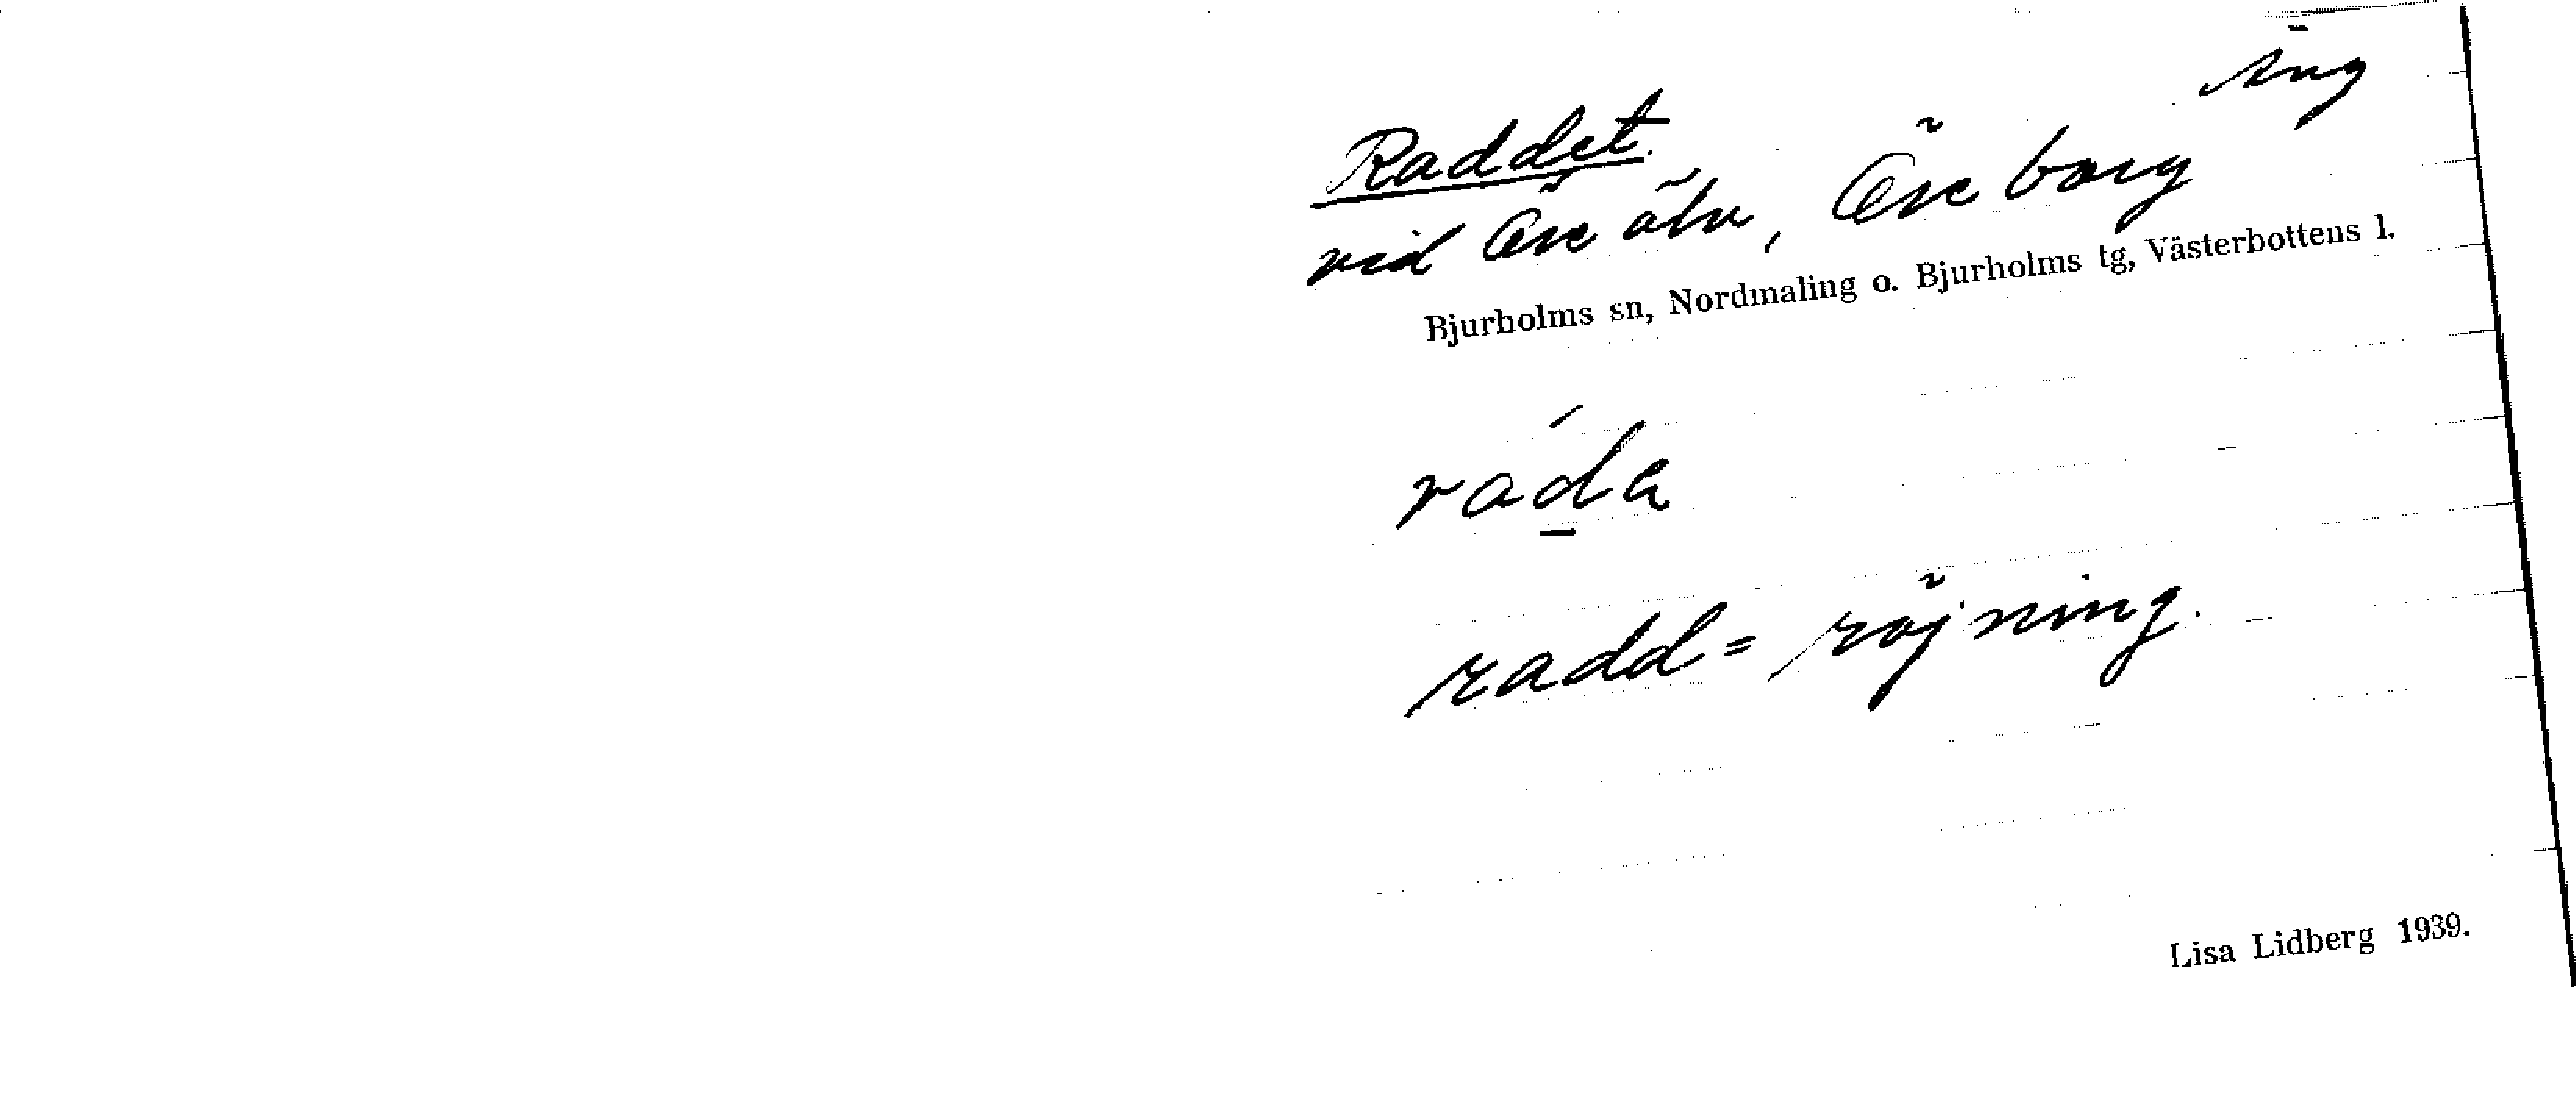 Raddet. äng
vid Öre älv, Öreborg
Bjurholms sn, Nordmaling o. Bjurholms tg, Västerbottens l.
ráda
radd = röjning.
Lisa Lidberg 1939.